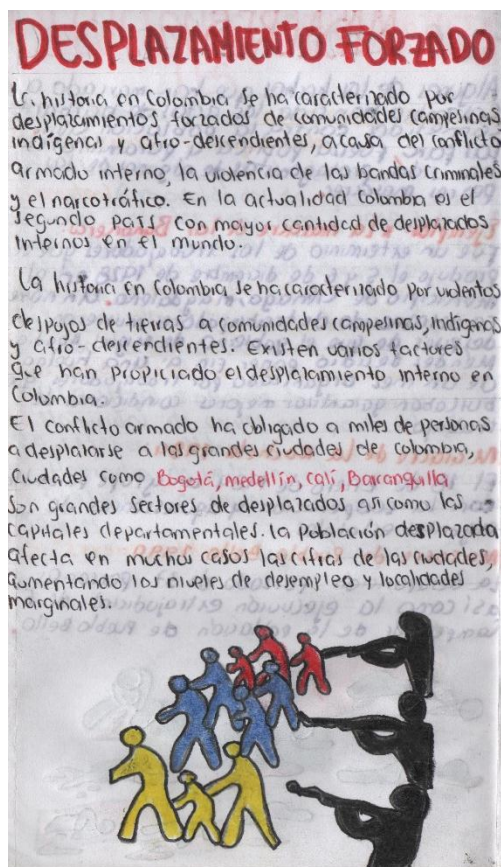 DESPLAZAMIENTO FORZADO
La historia en Colombia se ha caracterizado por
desplazamientos forzados de comunidades campesinas
indígenas y afro-descendientes, a causa del conflicto
armado interno, la violencia de las bandas criminales
y el narcotráfico. En la actualidad Colombia es el
segundo país con mayor cantidad de desplazados
internos en el mundo.
La historia en Colombia se ha caracterizado por violentos
despojos de tierras a comunidades campesinas, indígenas
y afro-descendientes. Existen varios factores
que han propiciado el desplazamiento interno en
Colombia.
El conflicto armado ha obligado a miles de personas
a desplazarse a las grandes ciudades de colombia,
ciudades como Bogotá, medellín, cali, Barranquilla
son grandes sectores de desplazados así como las
capitales departamentales. la población desplazada
afecta en muchos casos las cifras de las ciudades,
aumentando los niveles de desempleo y localidades
marginales.